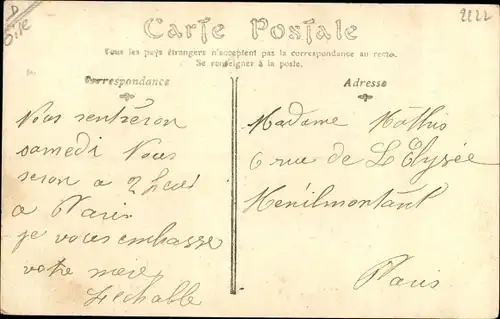 D
Oise
2222
Carte Postale
Tous les pays étrangers n'acceptent pas la correspondance au recto.
Se renseigner à la poste.
Correspondance
Nous rentreron
samedi Nous
seron a 2 heures
a Paris
je vous embrasse
votre mere
Lechalle
Adresse
Madame Mathis
6 rue de L'Elysée
Ménilmontant
Paris